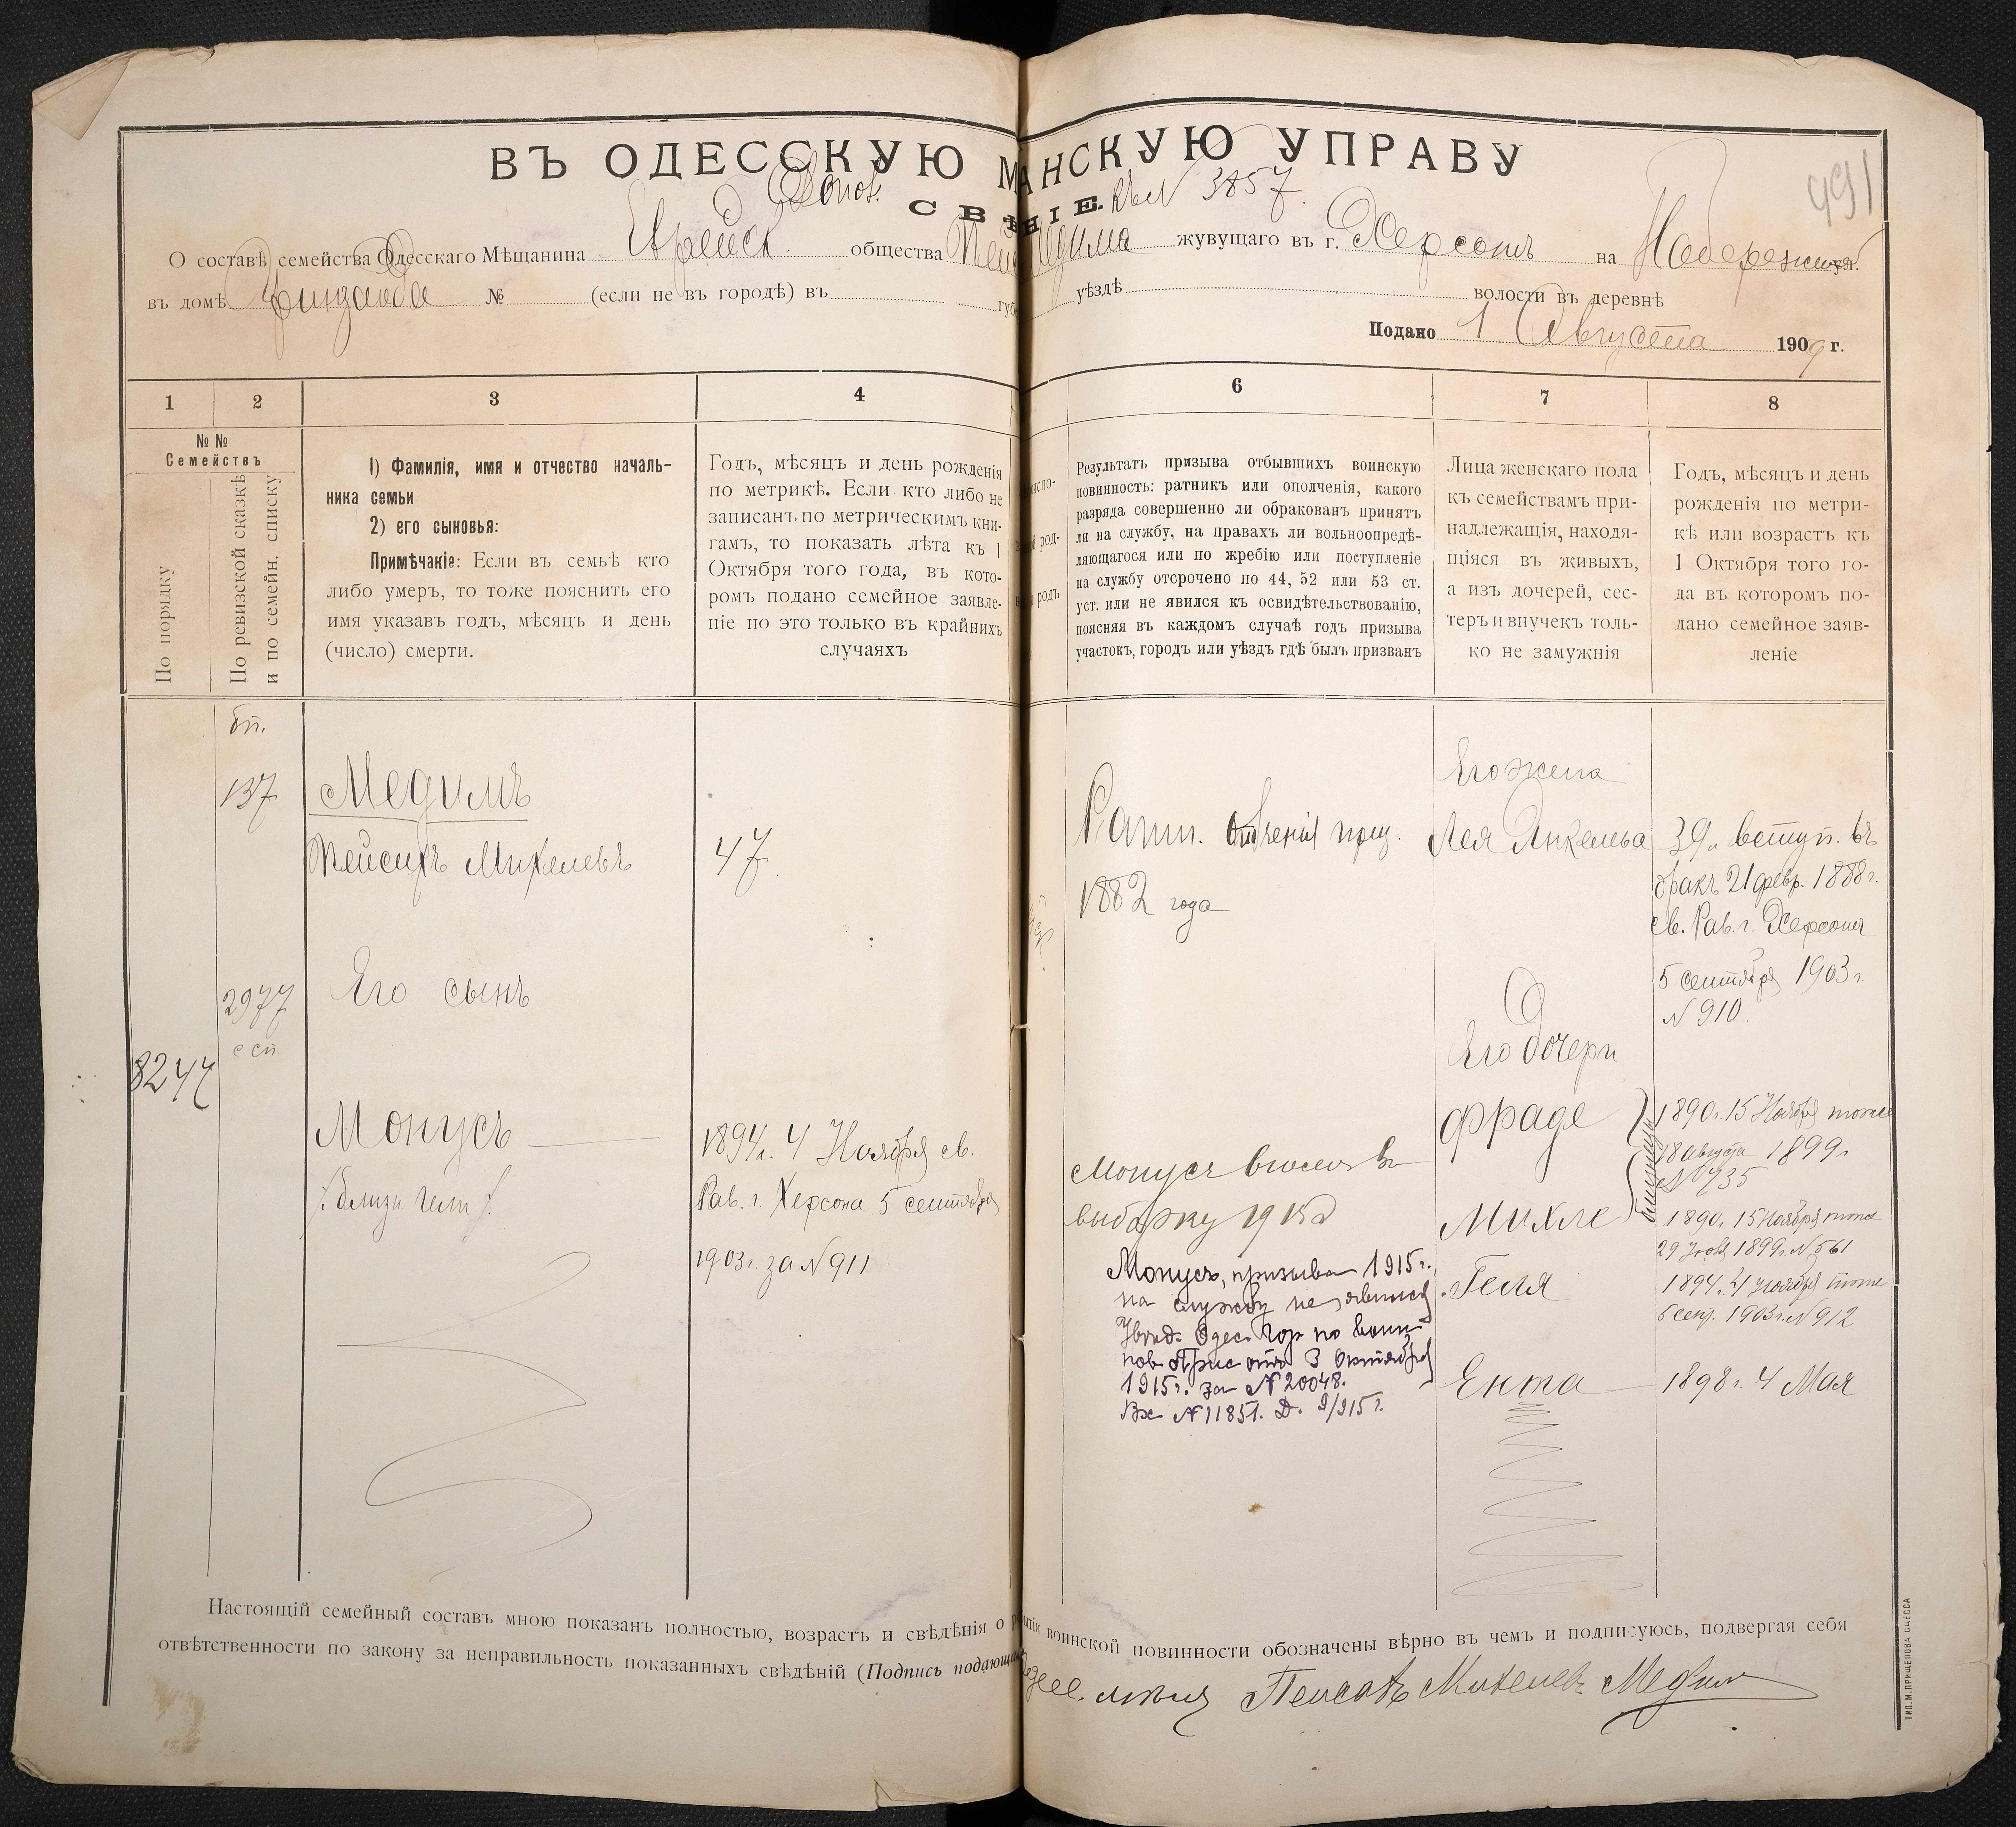 ВЪ ОДЕССКУЮ МѢ НСКУЮ УПРАВУ
СВѢ НІЕ. 3857
991
О составѣ семейства Одесскаго Мѣщанина Еврейск. общества жувущаго въ г. Херсонѣ на
въ домѣ № (если не въ городѣ) въ губ уѣздѣ волости въ деревнѣ
Подано 1 Августа 1909 г.
1 2 3 4 6 7 8
№№
Семействъ
По порядку
По ревизской сказкѣ
и по семейн. списку
1) Фамилія, имя и отчество началь-
ника семьи
2) его сыновья:
Примѣчакіе: Если въ семьѣ кто
либо умеръ, то тоже пояснить его
имя указавъ годъ, мѣсяцъ и день
(число) смерти.
Годъ, мѣсяцъ и день рожденія
по метрикѣ. Если кто либо не
записанъ по метрическимъ кни-
гамъ, то показать лѣта къ 1
Октября того года, въ кото-
ромъ подано семейное заявле-
ніе но это только въ крайнихъ
случаяхъ
Результатъ призыва отбывшихъ воинскую
повинность: ратникъ или ополченія, какого
разряда совершенно ли обракованъ принятъ
ли на службу, на правахъ ли вольноопредѣ-
ляющагося или по жребію или поступленіе
на службу отсрочено по 44, 52 или 53 ст.
уст. или не явился къ освидѣтельствованію,
поясняя въ каждомъ случаѣ годъ призыва
участокъ, городъ или уѣздъ гдѣ былъ призванъ
Лица женскаго пола
къ семействамъ при-
надлежащія, находя-
щіяся въ живыхъ,
а изъ дочерей, сес-
теръ и внучекъ толь-
ко не замужнія
Годъ, мѣсяцъ и день
рожденія по метри-
кѣ или возрастъ къ
1 Октября того го-
да въ которомъ по-
дано семейное заяв-
леніе
137
Медимъ
Пейсихъ Михелевъ
47.
Ратн. призы.
1882 года
Его жена
Лея Янкелева
39 л. вступ. въ
бракъ 21 февр. 1888 г.
св. Рав. г. Херсона
5 сентября 1903 г.
№ 910.
2977
с сп.
Его сынъ
8247
Монусъ
1894 г. 4 Ноября св.
Рав. г. Херсона 5 сентября
1903 г. за № 911
Монусъ внесенъ въ
выборку 1915
Монусъ, призыва 1915 г.
на службу не явился
Одес. Гор. по воин.
пов. Прис. отъ 3 Октября
1915 г. за № 20048.
Вх. № 11851. Д. 9/915 г.
Его дочери
Фраде
1890 г. 15 Ноября тоже
18 августа 1899 г.
№ 735
близнецы
Михле
1890 г. 15 Ноября тоже
1899 г. № 561
Геля
1894 г. 4 Ноября тоже
5 сент. 1903 г. № 912
Ента
1898 г. 4 Мая
Настоящій семейный составъ мною показанъ полностью, возрастъ и свѣдѣнія о воинской повинности обозначены вѣрно въ чемъ и подписуюсь, подвергая себя
отвѣтственности по закону за неправильность показанныхъ свѣдѣній (Подпись подающаго Пейсахъ Михелевъ Медим
ТИП. М. ПРИЩЕПОВА ОДЕССА